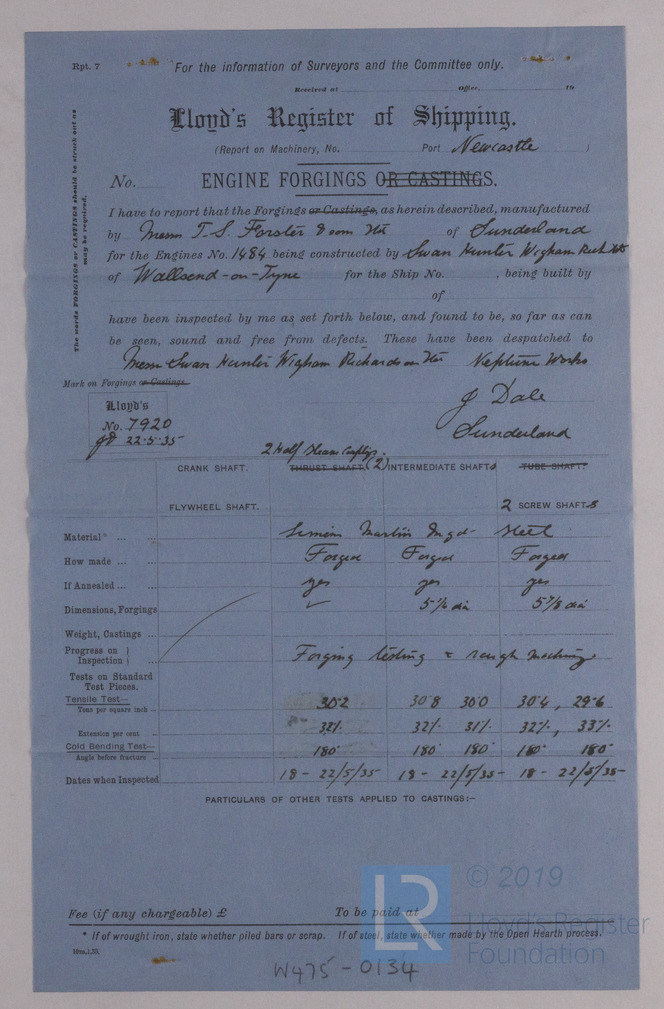 Rpt. 7
"For the information of Surveyors and the Committee only.
Received at Office, 19
Lloyd's Register of Shipping.
(Report on Machinery, No. Port Newcastle )
No. ENGINE FORGINGS OR CASTINGS.
The words FORGINGS or CASTINGS should be struck out as
may be required.
I have to report that the Forgings or Castings, as herein described, manufactured
by Messrs T. S. Forster & Sons Ltd of Sunderland
for the Engines No. 1484 being constructed by Swan Hunter Wigham Rich Ltd
of Wallsend-on-Tyne for the Ship No. , being built by
of
have been inspected by me as set forth below, and found to be, so far as can
be seen, sound and free from defects. These have been despatched to
Messrs Swan Hunter Wigham Richardson Ltd Neptune Works
Mark on Forgings or Castings.
Lloyd's
No. 7920
JD 22.5.35
J Dale
Sunderland
2 Half
CRANK SHAFT. THRUST SHAFT. (2) INTERMEDIATE SHAFTS TUBE SHAFT.
FLYWHEEL SHAFT. 2 SCREW SHAFTS
Material* ... ... Siemens Martin Ingot Steel
How made ... ... Forged Forged Forged
If Annealed ... ... yes yes yes
Dimensions, Forgings ✓ dia 5 7/8 dia
Weight, Castings ...
Progress on Inspection } ... Forging testing & rough machining
Tests on Standard
Test Pieces.
Tensile Test—
Tons per square inch ... 30.2 30.8 30.0 30.4, 29.6
Extension per cent ... 32% 32% 31% 32%, 33%
Cold Bending Test—
Angle before fracture ... 180° 180° 180° 180° 180°
Dates when Inspected 18 - 22/5/35 18 - 22/5/35 - 18 - 22/5/35 -
PARTICULARS OF OTHER TESTS APPLIED TO CASTINGS:—
Fee (if any chargeable) £ To be paid at
* If of wrought iron, state whether piled bars or scrap. If of steel, state whether made by the Open Hearth process.
W475-0134
LR
© 2019
Lloyd's Register
Foundation